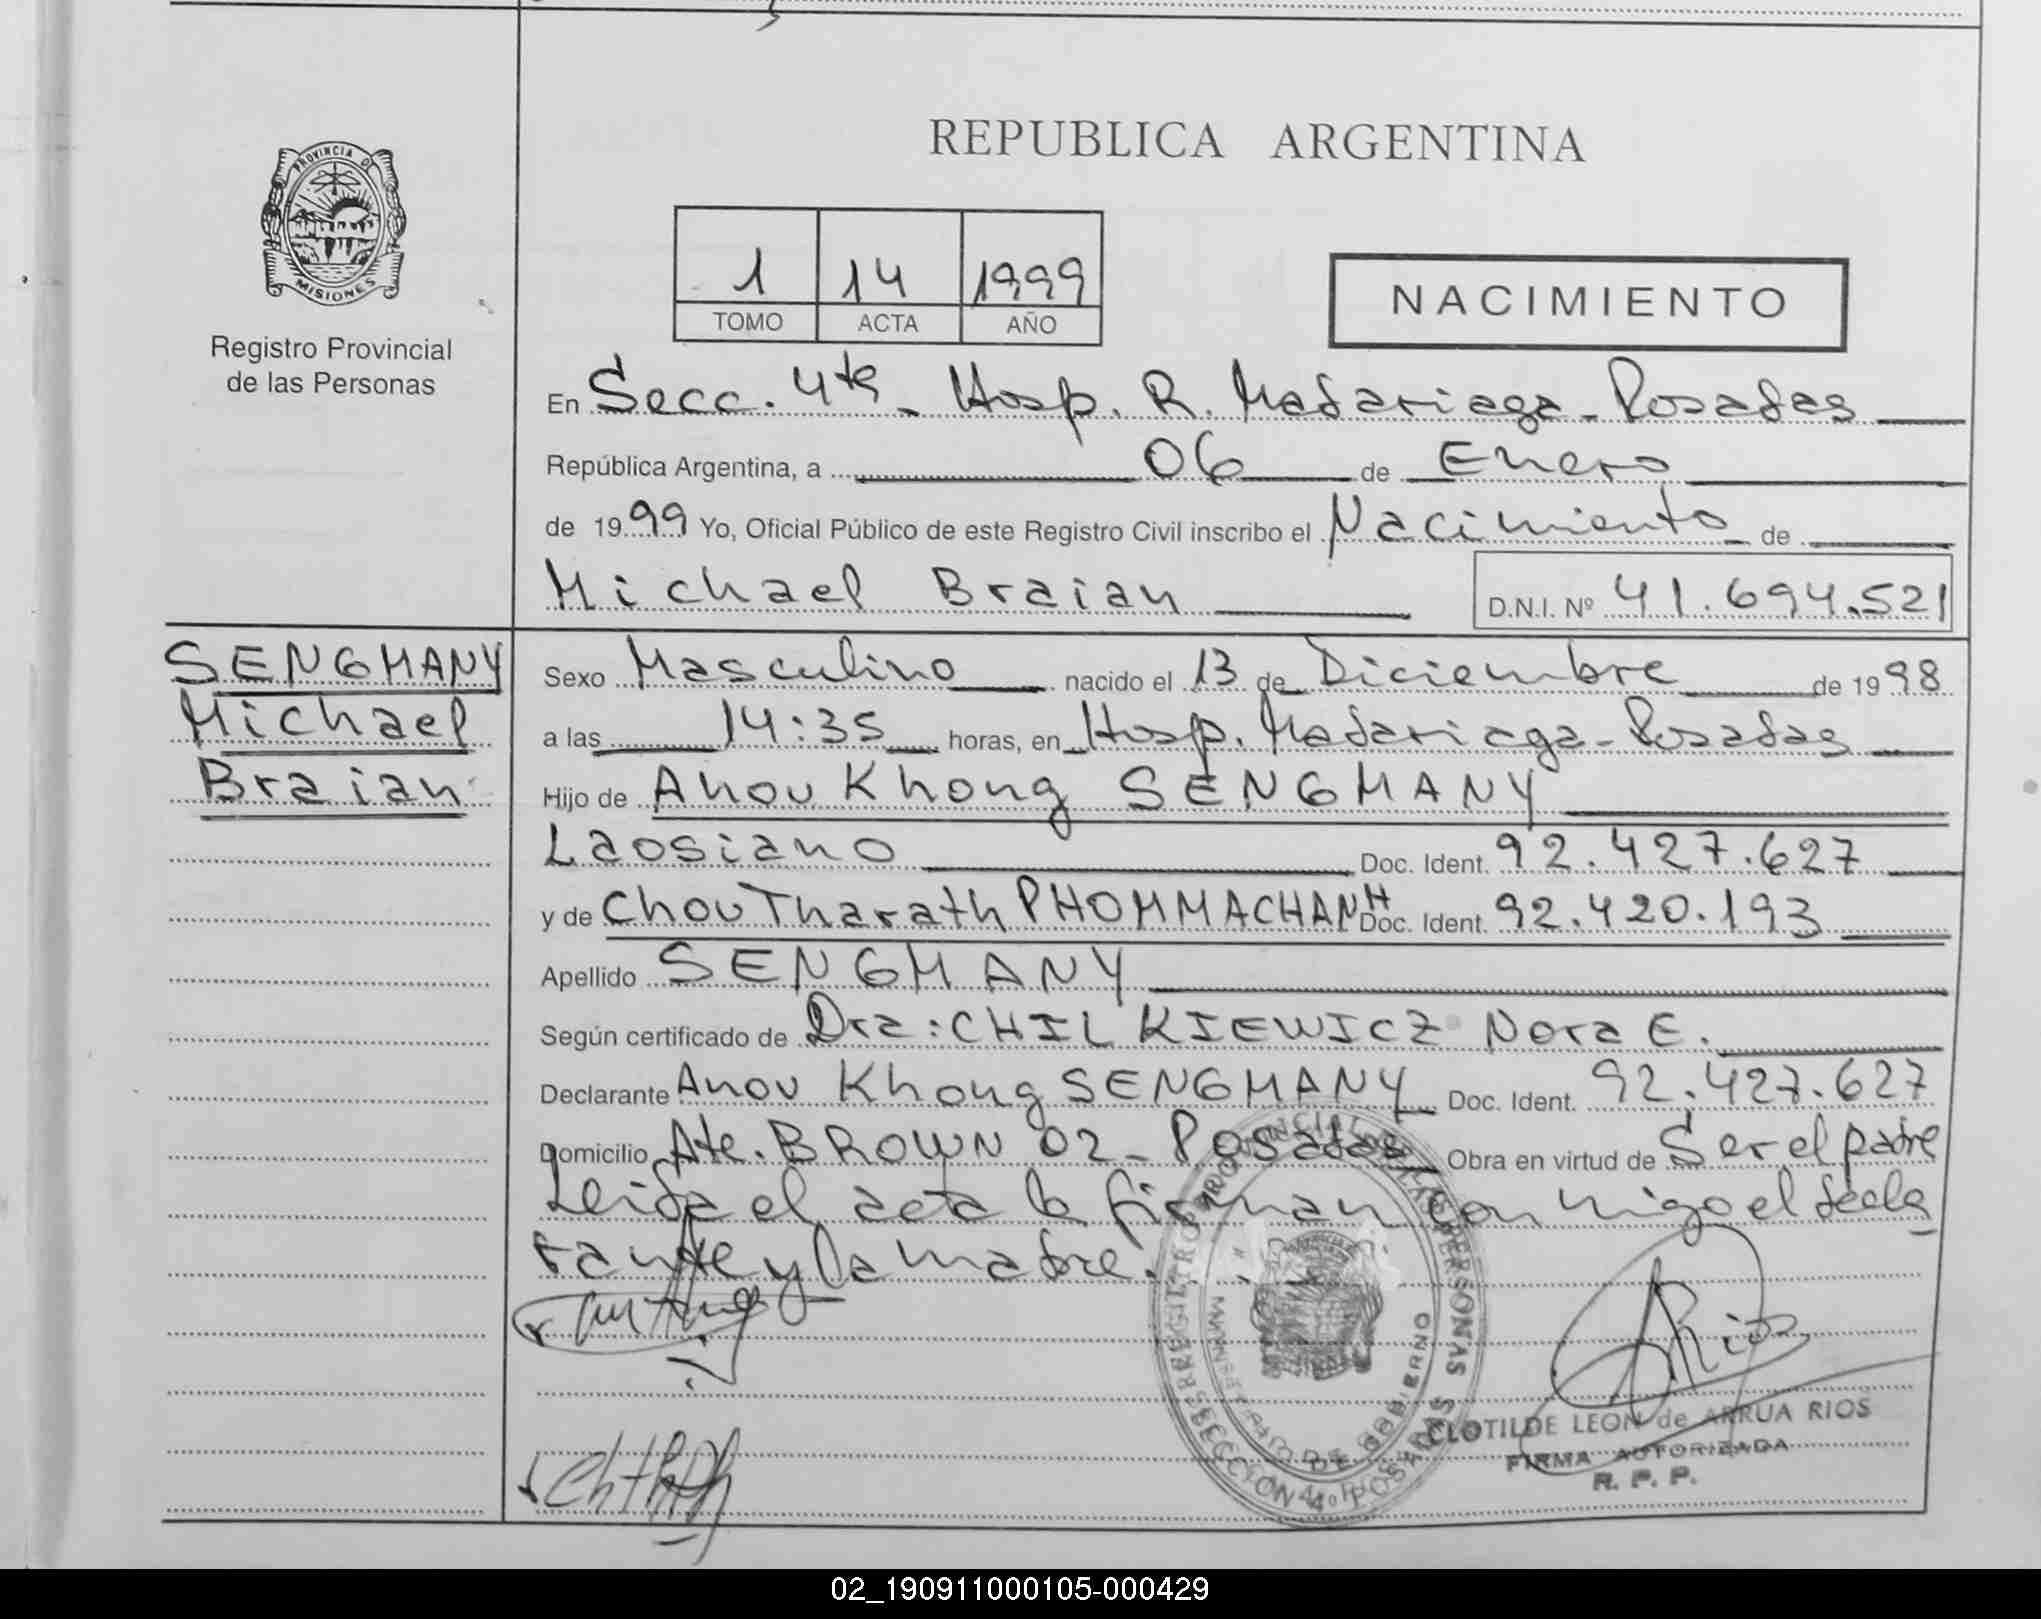 REPUBLICA ARGENTINA
PROVINCIA DE
MISIONES
Registro Provincial
de las Personas
1 14 1999
TOMO ACTA AÑO
NACIMIENTO
En Secc. 4ta - Hosp. R. Madariaga - Posadas
República Argentina, a 06 de Enero
de 1999 Yo, Oficial Público de este Registro Civil inscribo el Nacimiento de
Michael Braian D.N.I. Nº 41.694.521
SENGMANY
Michael
Braian
Sexo Masculino nacido el 13 de Diciembre de 1998
a las 14:35 horas, en Hosp. Madariaga - Posadas
Hijo de Anou Khong SENGMANY
Laosiano Doc. Ident. 92.427.627
y de Chou Tharath PHOMMACHANH Doc. Ident. 92.420.193
Apellido SENGMANY
Según certificado de Dra: CHILKIEWICZ Nora E.
Declarante Anou Khong SENGMANY Doc. Ident. 92.427.627
Domicilio Ate. BROWN 02 - Posadas Obra en virtud de Ser el padre
Leida el acta la firman con migo el decla
rante y la madre.
Rios
CLOTILDE LEON de ARRUA RIOS
FIRMA AUTORIZADA
R. P. P.
02_190911000105-000429